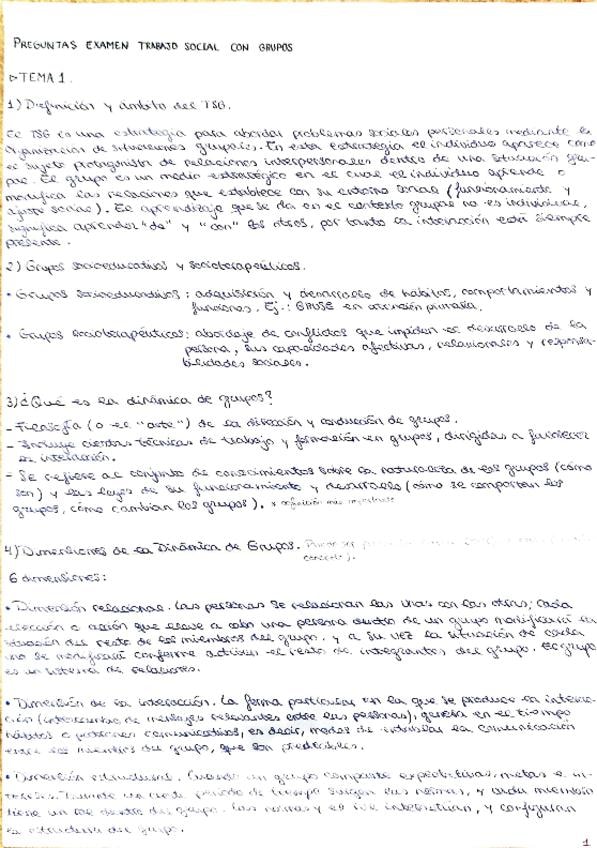 PREGUNTAS EXAMEN TRABAJO SOCIAL CON GRUPOS
▷TEMA 1.
1) Definición y ámbito del TSG.
El TSG es una estrategia para abordar problemas sociales personales mediante la
organización de situaciones grupales. En esta estrategia el individuo aparece como
el sujeto protagonista de relaciones interpersonales dentro de una situación gru-
pal. El grupo es un medio estratégico en el cual el individuo aprende o
modifica las relaciones que establece con su entorno social (funcionamiento y
ajuste social). El aprendizaje que se da en el contexto grupal no es individual,
significa aprender "de" y "con" los otros, por tanto la interacción está siempre
presente.
2) Grupos socioeducativos y socioterapéuticos.
• Grupos socioeducativos: adquisición y desarrollo de hábitos, comportamientos y
funciones. Ej.: GRUSE en atención primaria.
• Grupos socioterapéuticos: abordaje de conflictos que impiden el desarrollo de la
persona, sus capacidades afectivas, relacionales y responsa-
bilidades sociales.
3) ¿Qué es la dinámica de grupos?
- Filosofía (o el "arte") de la dirección y conducción de grupos.
- Incluye ciertas técnicas de trabajo y formación en grupos, dirigidas a favorecer
la interacción.
- Se refiere al conjunto de conocimientos sobre la naturaleza de los grupos (cómo
son) y las leyes de su funcionamiento y desarrollo (cómo se comportan los
grupos, cómo cambian los grupos). * definición más importante
4) Dimensiones de la Dinámica de Grupos.
6 dimensiones:
• Dimensión relacional. Las personas se relacionan las unas con las otras; cada
elección o acción que lleve a cabo una persona dentro de un grupo modificará la
situación del resto de los miembros del grupo, y a su vez la situación de cada
uno se modificará conforme actúen el resto de integrantes del grupo. El grupo
es un sistema de relaciones.
• Dimensión de la interacción. La forma particular en la que se produce la interac-
ción (intercambio de mensajes relevantes entre las personas), genera en el tiempo
hábitos o patrones comunicativos, es decir, modos de entablar la comunicación
entre los miembros del grupo, que son predecibles.
• Dimensión estructural. Cuando un grupo comparte expectativas, metas e in-
tereses durante un cierto periodo de tiempo surgen las normas, y cada miembro
tiene un rol dentro del grupo. Las normas y el rol interactúan, y configuran
la estructura del grupo.
1